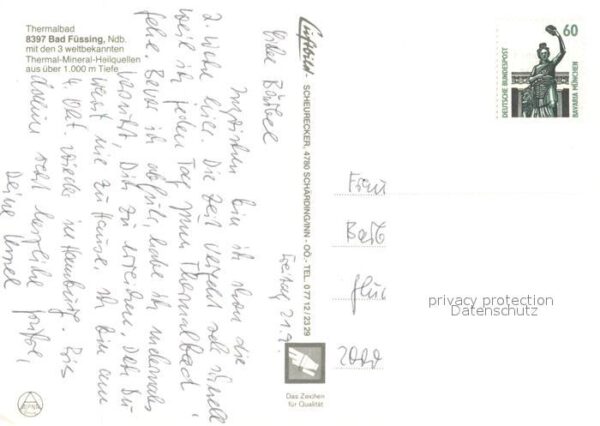 Thermalbad
8397 Bad Füssing, Ndb.
mit den 3 weltbekannten
Thermal-Mineral-Heilquellen
aus über 1.000 m Tiefe
Luftbild - SCHEURECKER, 4780 SCHÄRDING/INN - OÖ. - TEL. 0 77 12 / 23 29
Freitag 21.9.
Liebe Bärbel
Inzwischen bin ich schon die
2. Woche hier. Die Zeit vergeht sehr schnell
weil ich jeden Tag zum Thermalbad
gehe. Bevor ich abfuhr, habe ich mehrmals
versucht, Dich zu erreichen. Doch Du
warst nie zu Hause. Ich bin am
4. Okt. wieder in Hamburg. Bis
dahin recht herzliche Grüße,
Deine
60
DEUTSCHE BUNDESPOST
BAVARIA MÜNCHEN
Frau
2000
privacy protection
Datenschutz
Das Zeichen
für Qualität